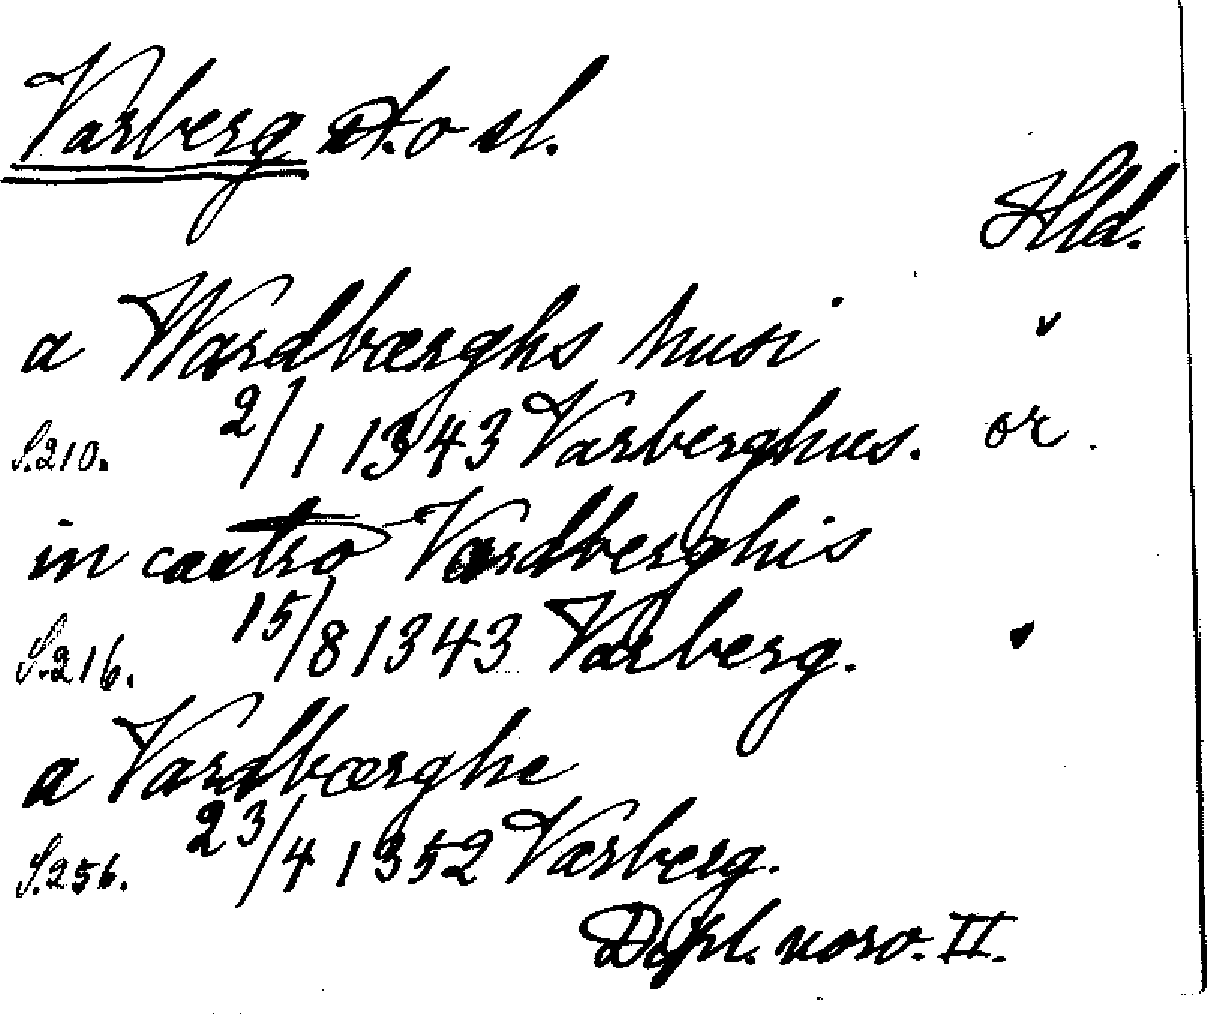 Varberg st. o sl.
Hld.
a Wardbærghs husi
S. 210. 2/1 1343 Varberghus. or.
in castro Vardberghis
S. 216. 15/8 1343 Varberg.
a Vardbærghe
S. 256. 23/4 1352 Varberg.
Dipl. norv. II.